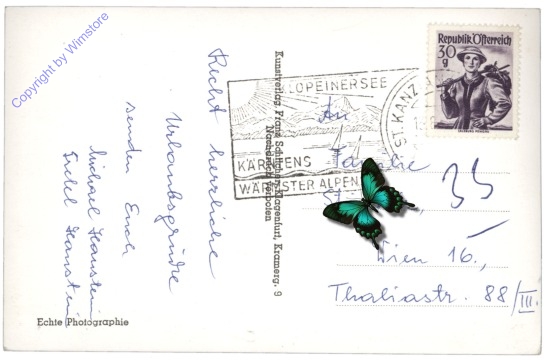 Copyright by Wimstore
Recht herzliche
Urlaubsgrüße
senden Euch
Michael
Echte Photographie
Kunstverlag Franz Schilcher, Klagenfurt, Kramerg. 9
Nachdruck verboten
KLOPEINERSEE
KÄRNTENS
WÄRMSTER ALPEN
ST. KANZ
Republik Österreich
30
g
An
Familie
35
Wien 16.,
Thaliastr. 88/III.